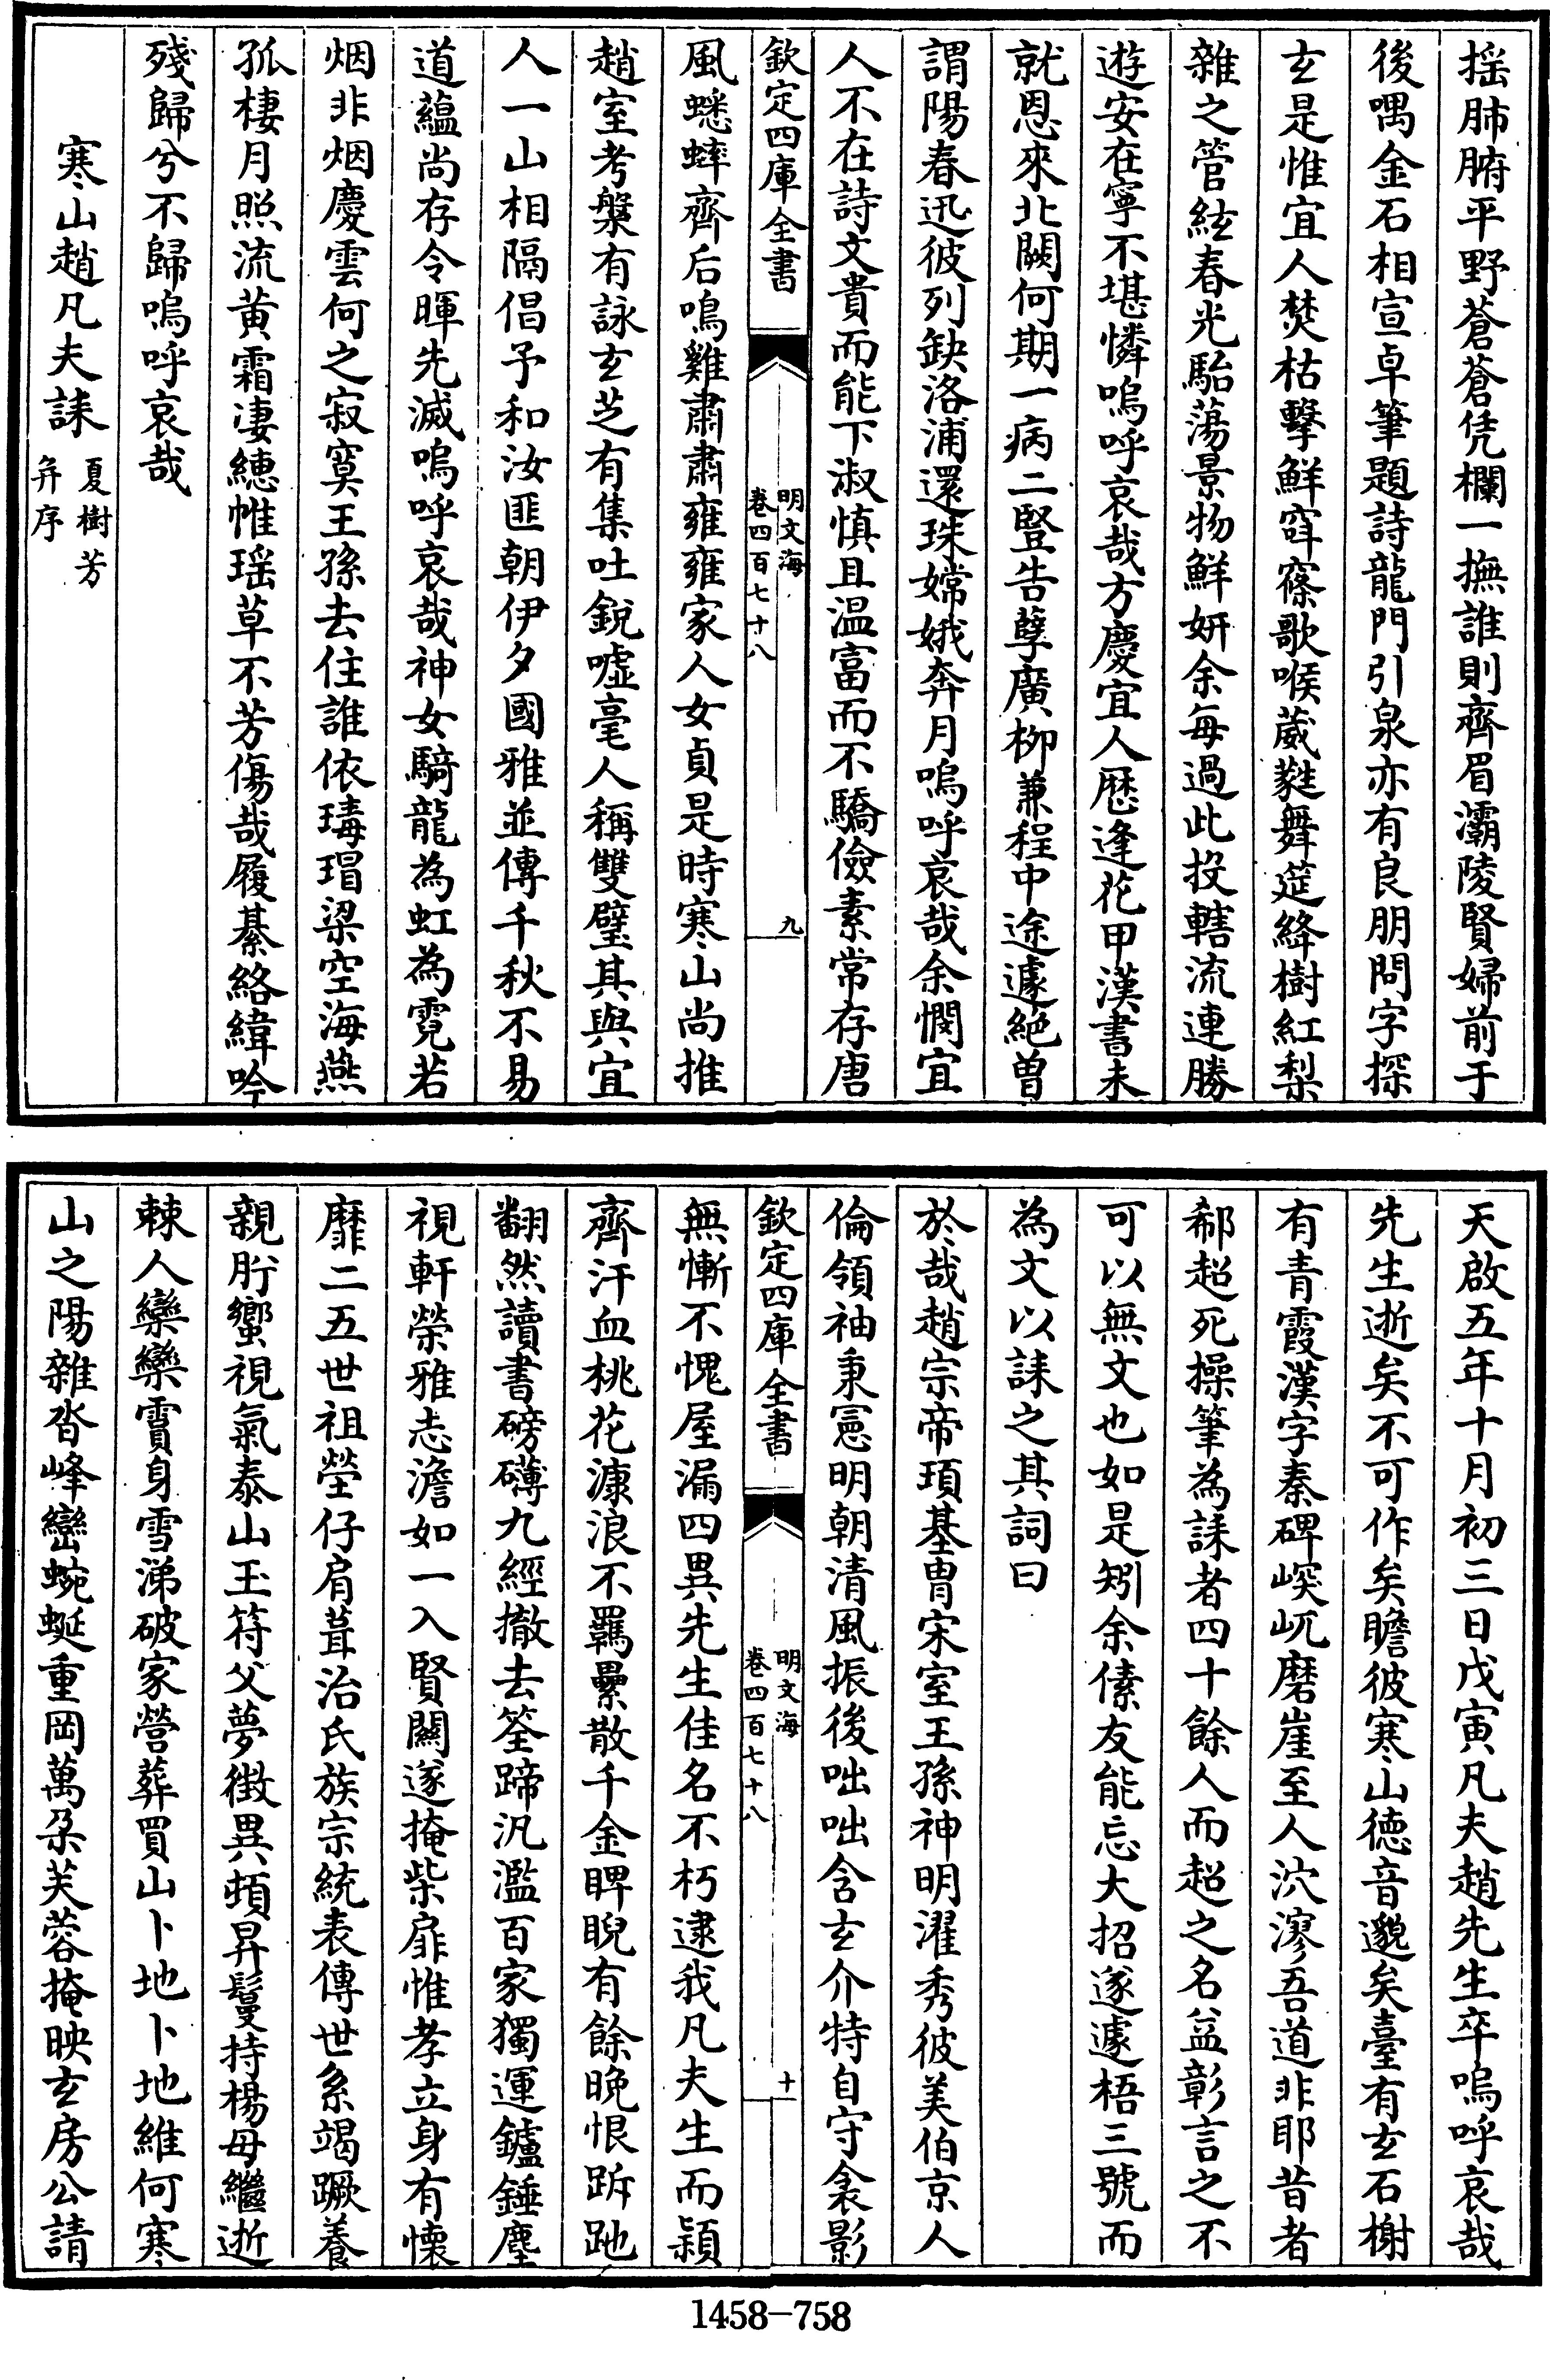 揺肺腑平野蒼蒼凭欄一撫誰則齊眉灞陵賢婦前于
後喁金石相宣卓筆題詩龍門引泉亦有良朋問字探
玄是惟宜人焚枯擊鮮窅窱歌喉葳蕤舞筵絳樹紅梨
雜之管絃春光駘蕩景物鮮妍余每過此投轄流連勝
遊安在寧不堪憐嗚呼哀哉方慶宜人歴逢花甲漢書未
就恩來北闕何期一病二豎告孽廣栁兼程中途遽絶曽
謂陽春迅彼列缺洛浦還珠嫦娥奔月嗚呼哀哉余憫宜
人不在詩文貴而能下淑慎且温富而不驕儉素常存唐
欽定四庫全書
明文海
卷四百七十八
九
風蟋蟀齊后鳴雞肅肅雍雍家人女貞是時寒山尚推
趙室考槃有詠玄芝有集吐鋭噓毫人稱雙璧其與宜
人一山相隔倡予和汝匪朝伊夕國雅並傳千秋不易
道蘊尚存令暉先滅嗚呼哀哉神女騎龍為虹為霓若
烟非烟慶雲何之寂寞王孫去住誰依瑇瑁梁空海燕
孤棲月照流黄霜凄繐帷瑶草不芳傷哉履綦絡緯吟
殘歸兮不歸嗚呼哀哉
寒山趙凡夫誄 夏樹芳
并序
天啟五年十月初三日戊寅凡夫趙先生卒嗚呼哀哉
先生逝矣不可作矣瞻彼寒山德音邈矣臺有玄石榭
有青霞漢字秦碑㟮屼磨崖至人泬漻吾道非耶昔者
郗超死操筆為誄者四十餘人而超之名益彰言之不
可以無文也如是矧余傃友能忘大招遂遽梧三號而
為文以誄之其詞曰
於哉趙宗帝頊基胄宋室王孫神明濯秀彼美伯京人
倫領袖秉憲明朝清風振後咄咄含玄介特自守衾影
欽定四庫全書
明文海
卷四百七十八
十
無慚不愧屋漏四異先生佳名不朽逮我凡夫生而穎
齊汗血桃花漮浪不羈纍散千金睥睨有餘晚恨跅弛
翻然讀書磅礴九經撤去筌蹄汎濫百家獨運鑪錘塵
視軒榮雅志澹如一入賢闗遂掩柴扉惟孝立身有懷
靡二五世祖塋仔肩葺治氏族宗統表傳世系竭蹶養
親肸蠁視氣泰山玉符父夢徴異頓昇鬘持楊母繼逝
棘人欒欒賣身雪涕破家營葬買山卜地卜地維何寒
山之陽雜沓峰巒蜿蜒重岡萬朶芙蓉掩映玄房公請
1458-758